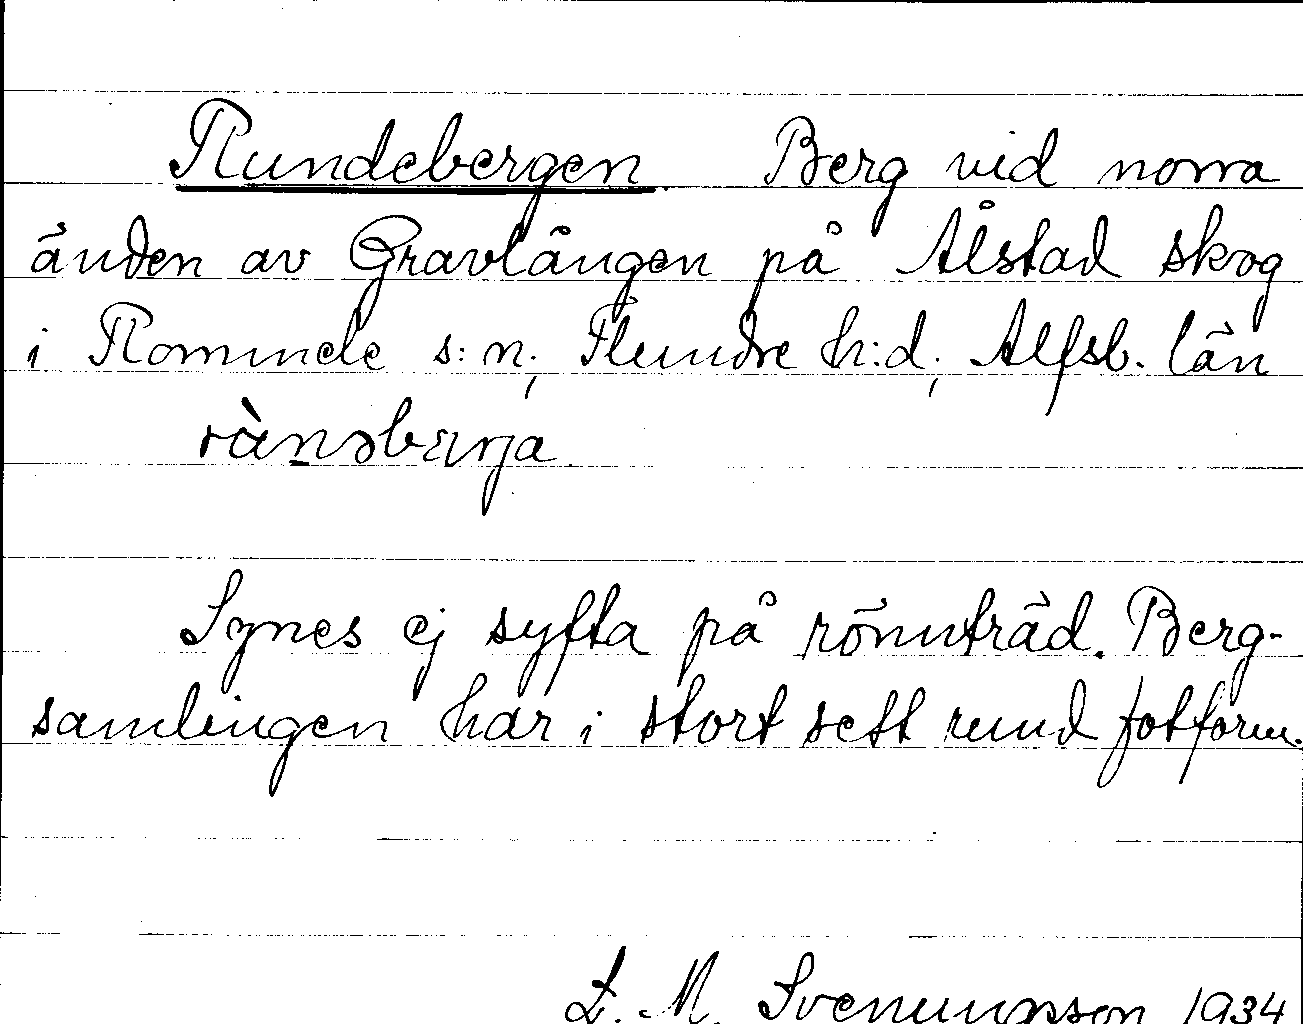 Rundebergen Berg vid norra
änden av Gravlången på Ålstad skog
i Rommele s:n, Flundre h:d, Alfsb. län
Synes ej syfta på rönnträd. Berg-
samlingen har i stort sett rund fotform.
L. M. Svenungsson 1934